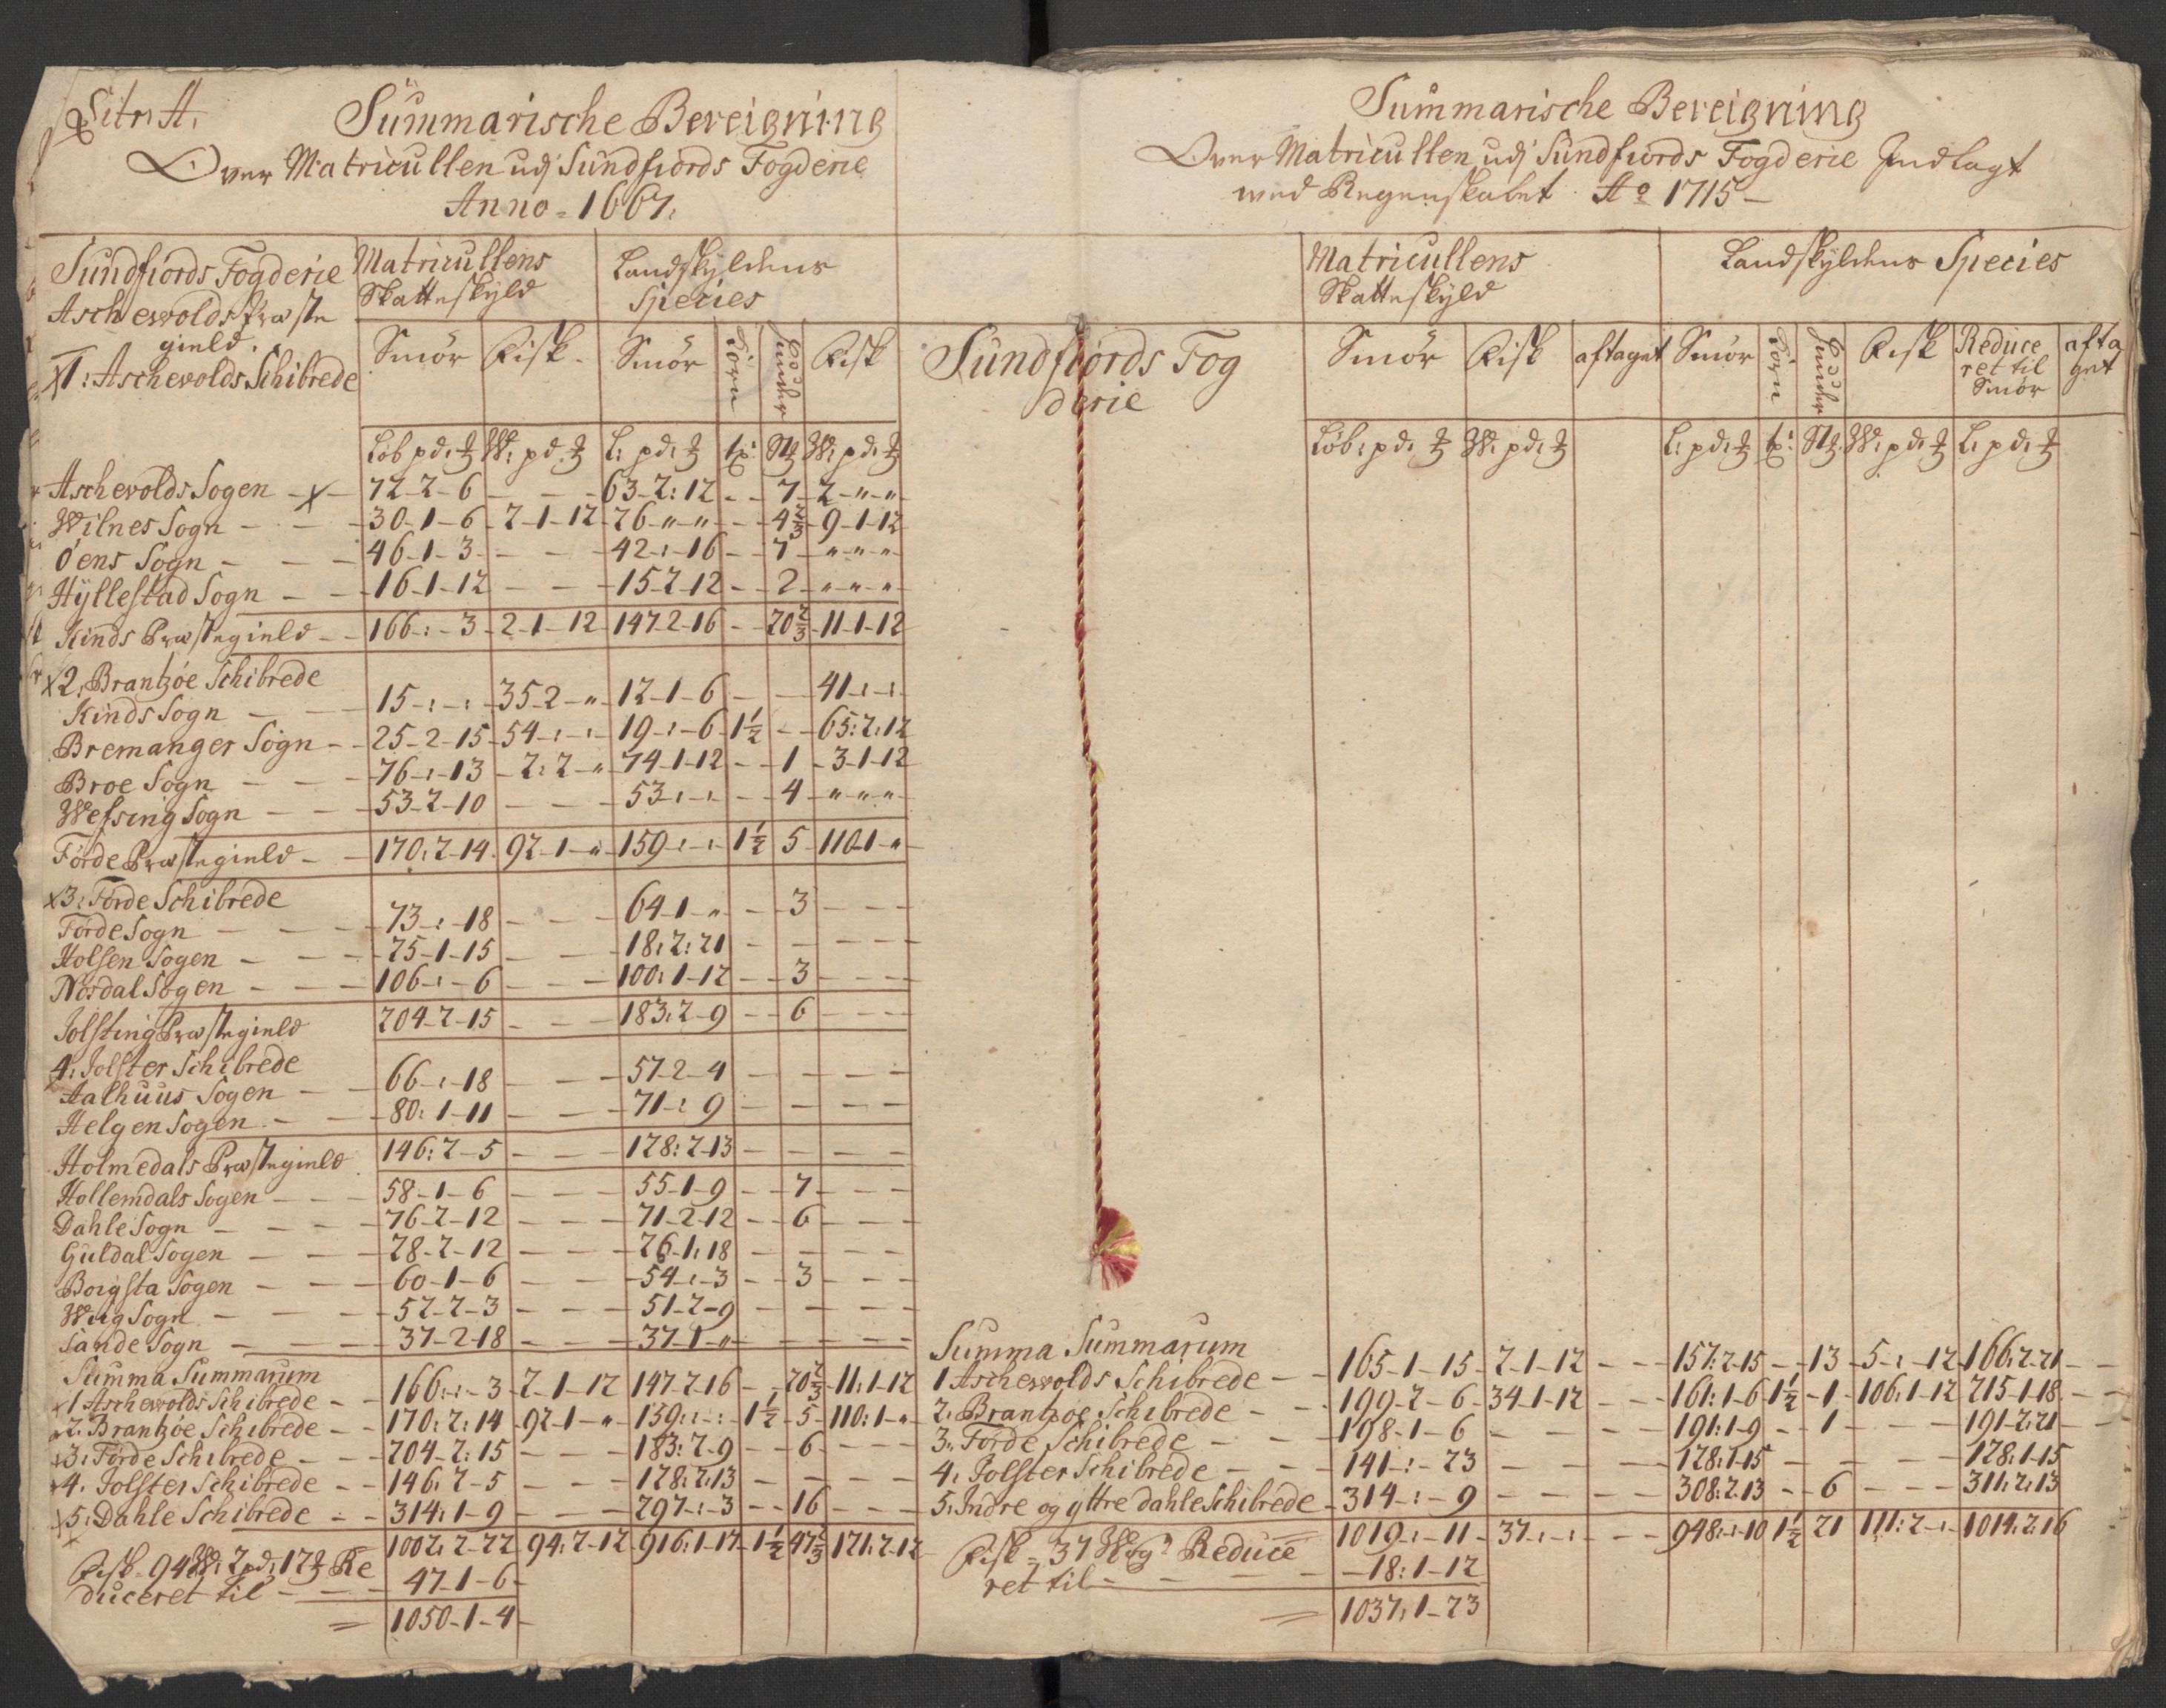 Litr: A.
Summarische Bereigning
Over Matricullen udj Sundfiords Fogderie
Anno = 1667.
Sundfiords Fogderie
Aschewolds Præste
gield.
1: Aschevolds Schibrede
Matricullens
Skatteskyld
Landskyldens
Species
Smör Fisk Smör Körn Huder Fisk
Löb pd: W: pd: L: pd: W: pd:
Aschevolds Sogen 72-2-6 - 63-2:12 - 7 2-"-"
Wilnes Sogn 30-1-6 2-1-12 26-"-" - 4 2/3 9-1-12
Öens Sogn 46-1-3 - 42-:-16 - 7 "-"-"
Hÿllestad Sogn 16-1-12 - 15-2-12 - 2 "-"-"
Kinds Præstegield 166-:-3 2-1-12 147-2-16 - 20 2/3 11-1-12
2, Brantzöe Schibrede
Kinds Sogn 15-:-: 35-2-" 12-1-6 - - 41-:-:
Bremanger Sogn 25-2-15 54-:-: 19-:-6 1 1/2 - 65:2:12
Broe Sogn 76-:-13 2:2-" 74-1-12 - 1 3-1-12
Wefsing Sogn 53-2-10 - 53-:-: - 4 "-"-"
Förde Præstegield 170:2-14 92-1-" 159-:-: 1 1/2 5 110-1-"
3: Förde Schibrede
Förde Sogn 73-:-18 - 64-1-" - 3 -
Holsen Sogen 25-1-15 - 18:2:21 - - -
Nordal Sogen 106-:-6 - 100:1-12 - 3 -
Jolsting Præstegield 204-2-15 - 183:2-9 - 6 -
4: Jolster Schibrede
Aalhuus Sogen 66-:-18 - 57-2-4 - - -
Helgen Sogen 80:1-11 - 71-:9 - - -
Holmedals Præstegield 146:2-5 - 128:2-13 - - -
Hollemdals Sogen 58-1-6 - 55-1-9 - 7 -
Dahle Sogn 76-2-12 - 71-2-12 - 6 -
Guldal Sogen 28-2-12 - 26-1:18 - - -
Borgsta Sogen 60-1-6 - 54-:-3 - 3 -
Wiig Sogn 52-2-3 - 51-2-9 - - -
Sande Sogn 37-2-18 - 37-1-" - - -
Summa Summarum
1 Aschevolds Schibrede 166-:-3 2-1-12 147-2-16 - 20 2/3 11:1-12
2: Brantzöe Schibrede 170:2:14 92-1-" 159:-: 1 1/2 5 110:1-"
3: Förde Schibrede 204-2:15 - 183:2-9 - 6 -
4: Jolster Schibrede 146:2-5 - 128:2:13 - - -
5: Dahle Schibrede 314:1-9 - 297-:-3 - 16 -
1002:2-22 94:2-12 916:1-17 1 1/2 47 2/3 121:2-12
Fisk - 94 W: 2 pd: 12 Re
duceret til 47-1-6
= 1050-1-4
Summarische Bereigning
Over Matricullen udj Sundfiords Fogderie Indlagt
med Regenskabet Ao 1715
Matricullens
Skatteskyld
Landskyldens Species
Sundfiords Fog
derie
Smör Fisk aftaget Smör Körn Huder Fisk Reduce
ret til
Smör afta
get
Löb: pd: W: pd: L: pd: W: pd: L: pd:
Summa Summarum
1 Aschewolds Schibrede 165-1-15 2-1-12 - 157:2-15 - 13 5-:-12 166:2-21 -
2: Brantzoe Schibrede 199-2-6 34-1-12 - 161:1-6 1 1/2 1 106:1-12 215-1-18 -
3: Förde Schibrede 198-1-6 - - 191:1-9 - 1 - 191-2:21 -
4: Jolster Schibrede 141-:-23 - - 128:1-15 - - - 128:1-15
5: Indre og yttre dahle Schibrede 314-:-9 - - 308:2-13 - 6 - 311:2:13
1019-:-11 37-:-: - 948:-:-10 1 1/2 21 111:2-: 1014:2:16
Fisk = 37 Wog Reduce
ret til 18:1-12
= 1037:1-23